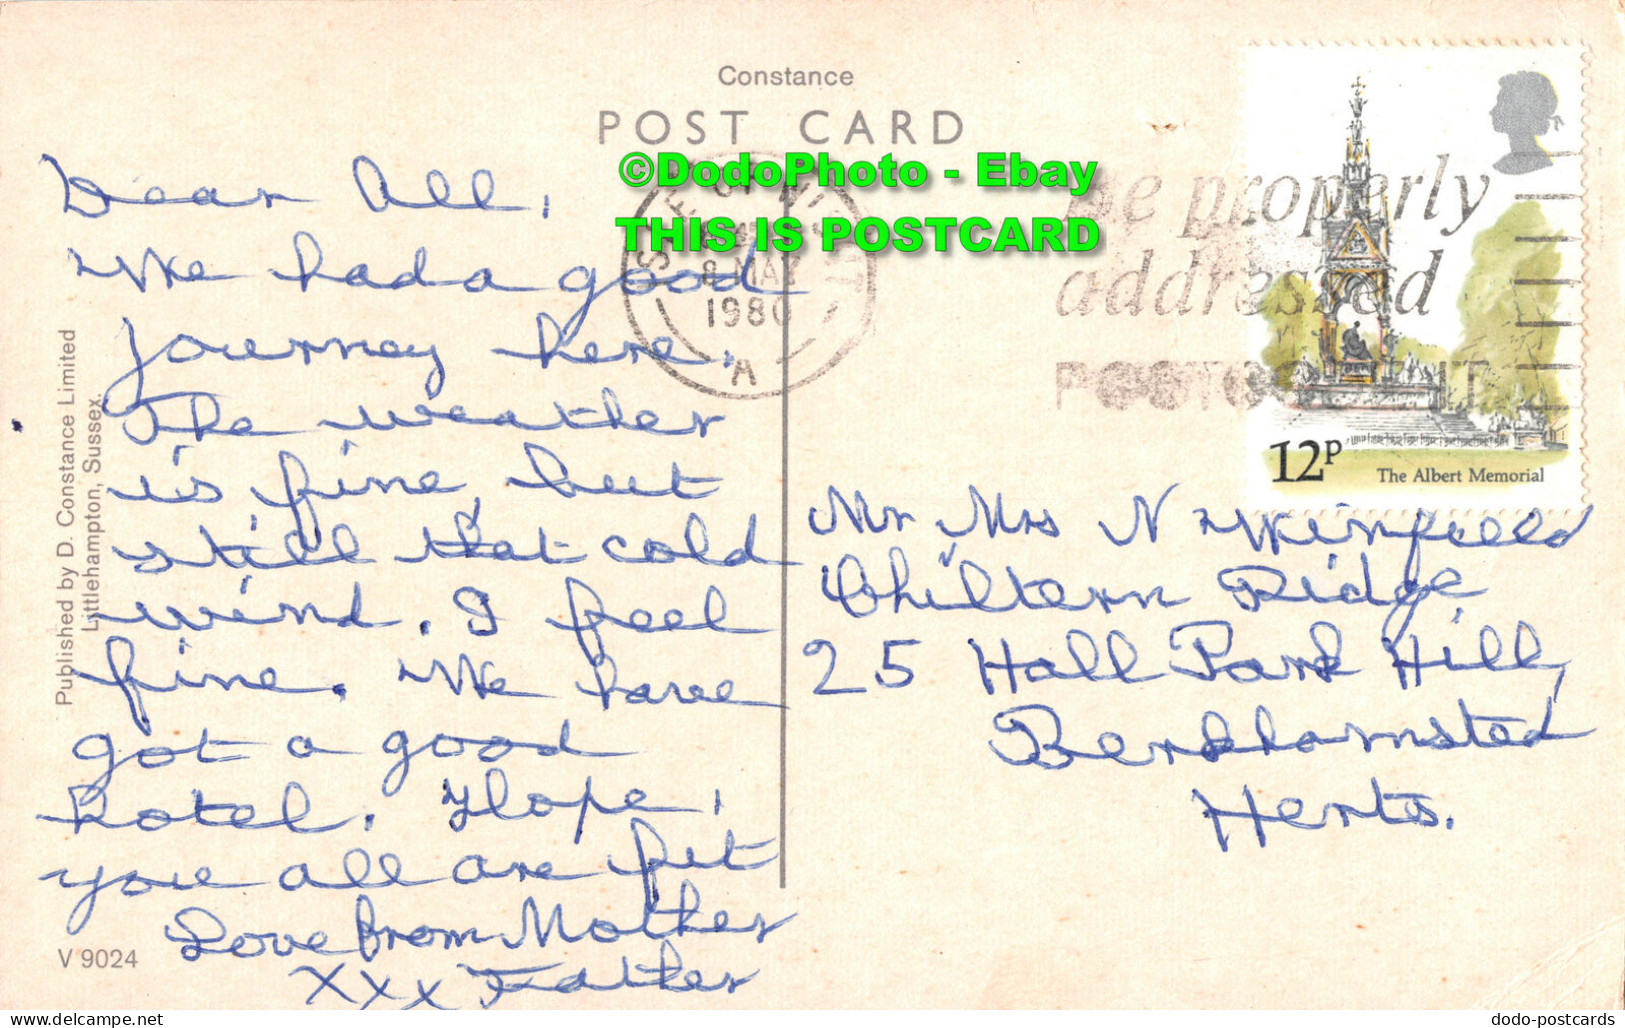 Constance
POST CARD
©DodoPhoto - Ebay
THIS IS POSTCARD
8 MAY
1980
A
be properly
addressed
POSTCODE IT
12P
The Albert Memorial
Dear All,
We had a good
journey here.
The weather
is fine, but
still that cold
wind. I feel
fine. We have
got a good
hotel. Hope,
you all are fit
Love from Mother
xxx Father
Mr Mrs N Winfield
Chiltern Ridge
25 Hall Park Hill,
Berkhamsted
Herts.
Published by D. Constance Limited
Littlehampton, Sussex.
V 9024
dodo-postcards